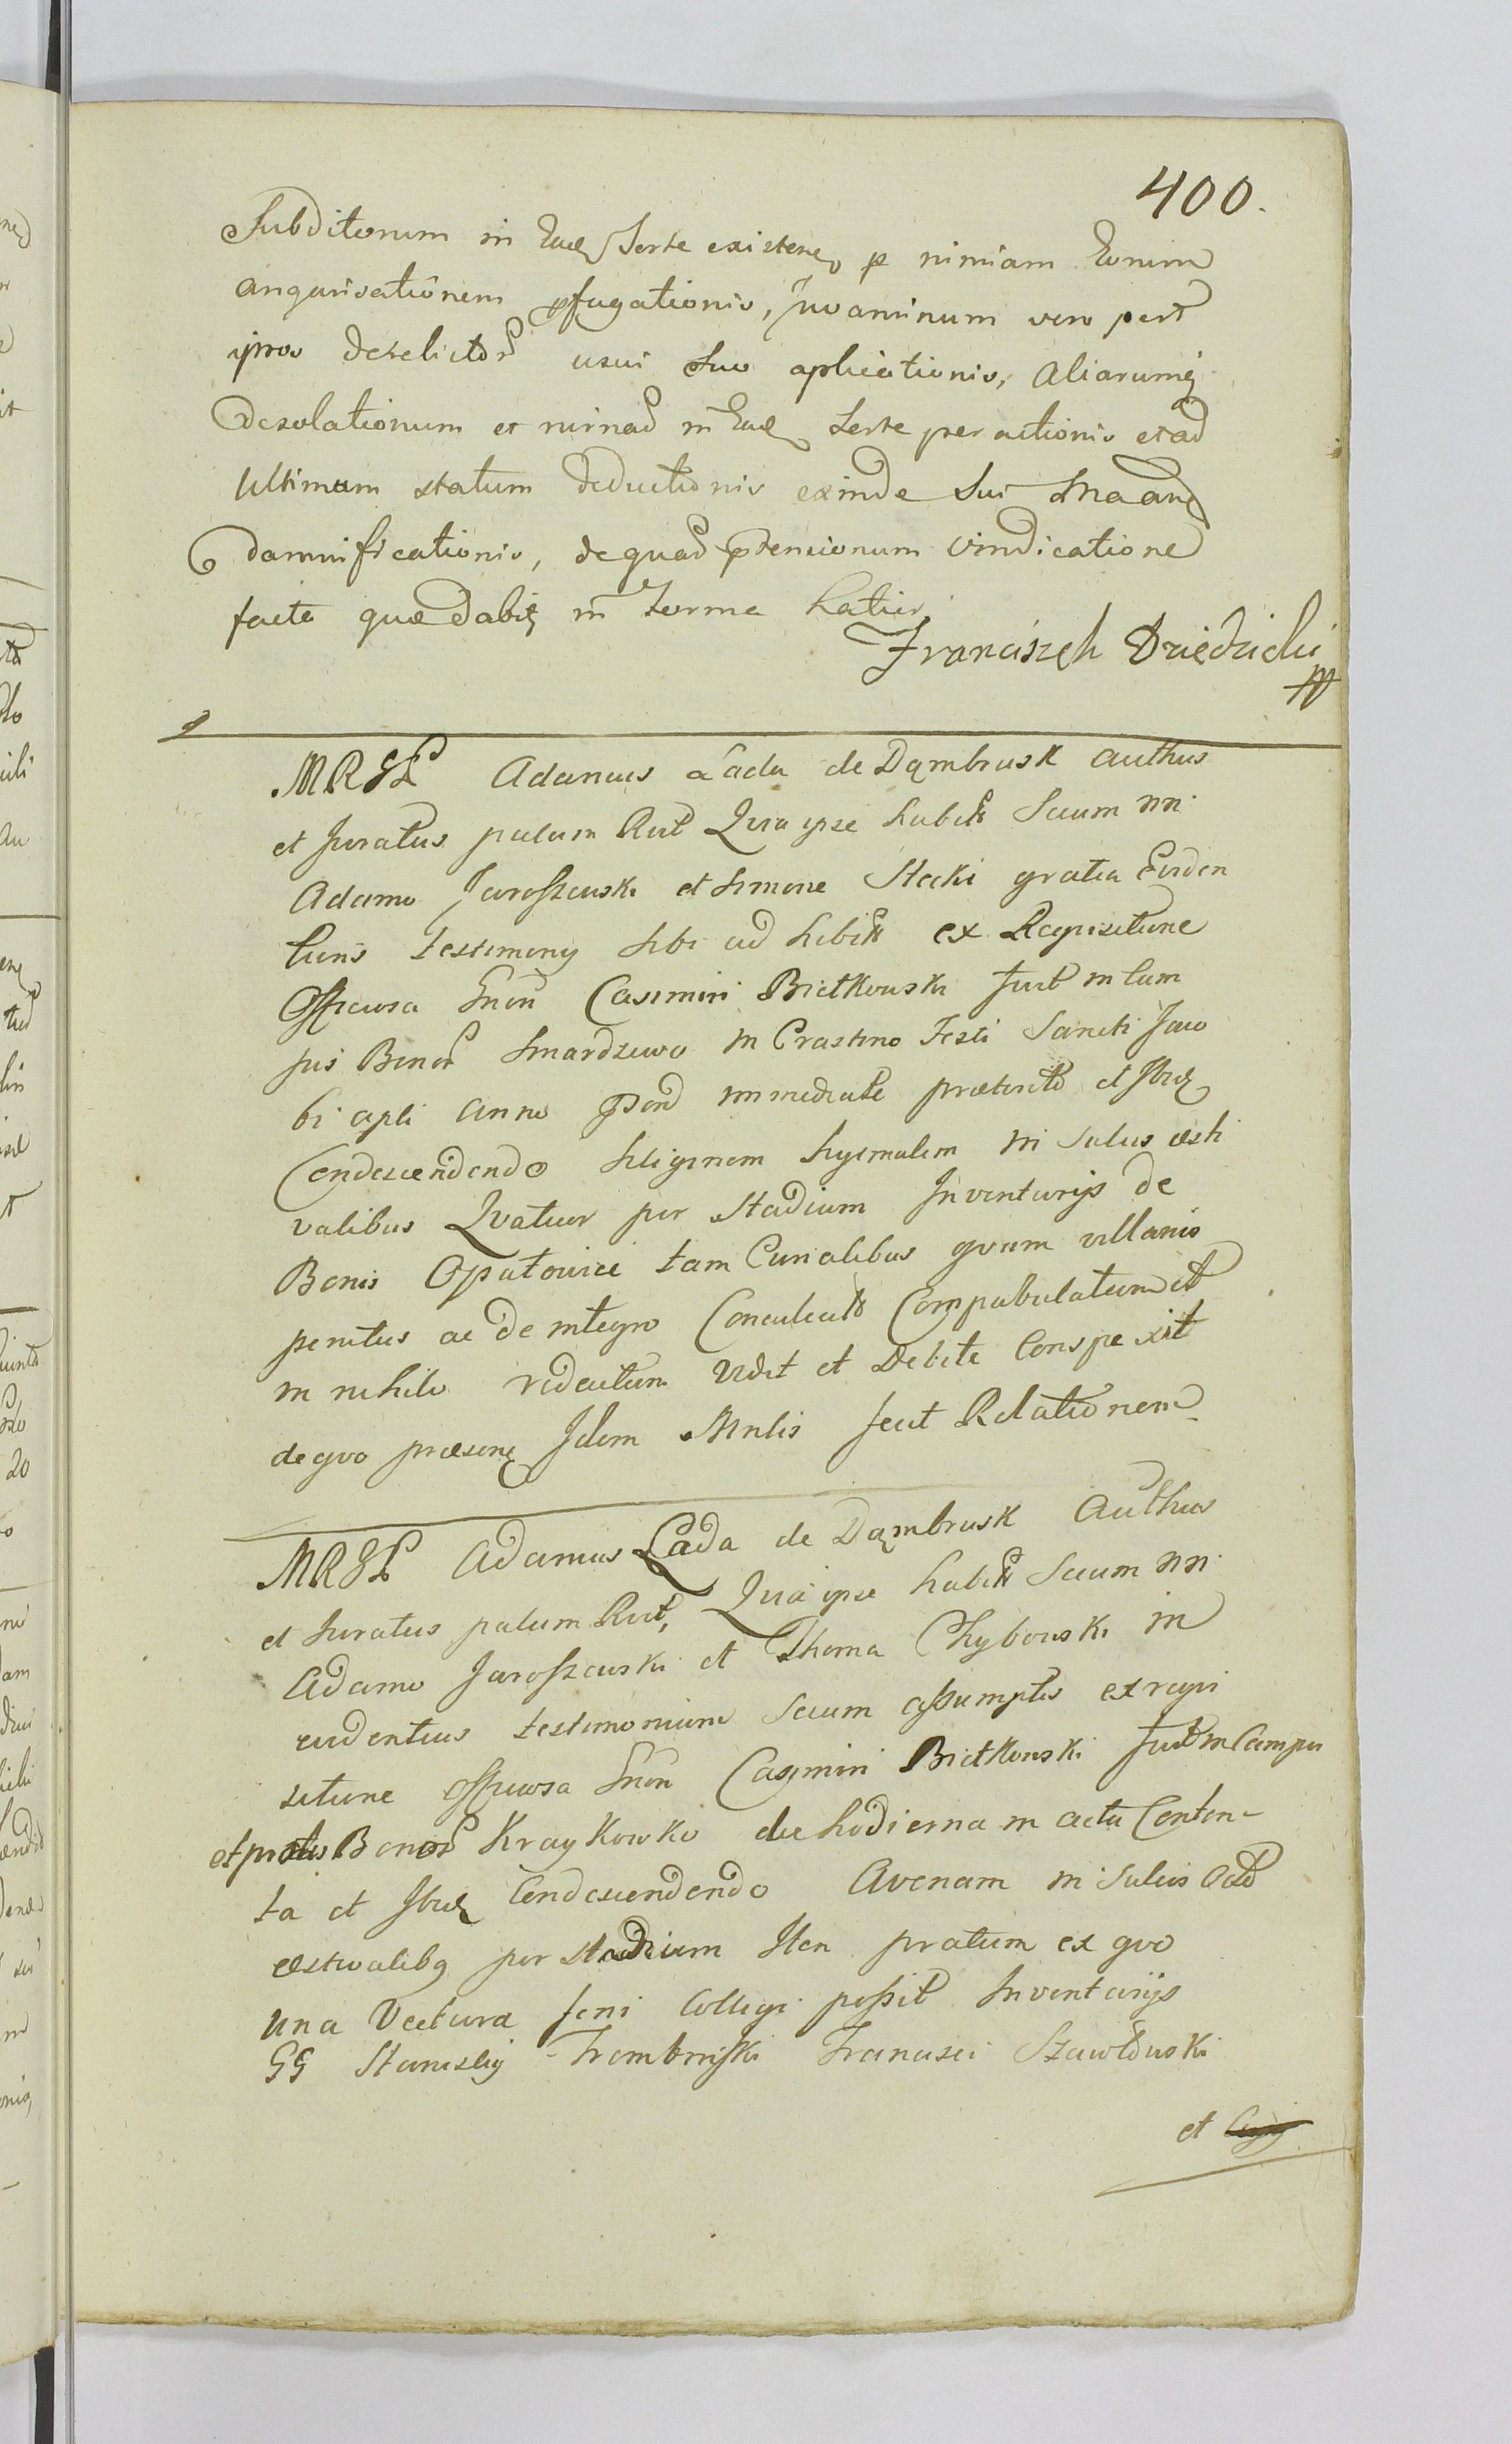 400.
Subditorum in Ead Sorte existen p nimiam Eorum
angarisationem pfugationis, Juvaminum vero post
ipsos derelictor usui suo aplicationis, aliarumq
Desolationum et ruinar in Ead Sorte peractionis et ad
Ultimum statum deductionis exinde sui
damnificationis, de quar ptensionum vindicatione
facta quae dabit in Termo latius
Franciszek Dziedzicki
mp
MRGL Adamus Łada de Dąmbrusk authus
et Juratus palam Rlt Quia ipse habitis Secum nn
Adamo Jaroszewski et Simone Stecki gratia Eviden
tioris testimonij sibi ad hibitis ex Reqvisitione
Officiosa Gnsi Casimiri Bietkowski fuit in Cam
pis Bonor Smardzewo in Crastino Festi Sancti Jaco
bi apli anno psen immediate praeterito et Ibid
Condescendendo Siliginem hyemalem in Sulcis aesti
valibus Qvatuor per Stadium Inventarijs de
Bonis Opatowice tam Curialibus qvam villanis
penitus ac de integro Conculcatis Compabulatum et
in nihilo redactum vidit et Debite Conspexit
de qvo praesens Idem Mnlis fecit Relationem
MRGL Adamus Łada de Dąmbrusk Authus
et Juratus palam Rlt, Quia ipse habitis Secum nn
Adamo Jaroszewski et Thoma Chybowski in
evidentius testimonium Secum assumptis ex reqvi
sitione officiosa Gnsi Casimiri Bietkowski fuit in Campis
et pratis Bonor Kraykowko die hodierna in actu Conten-
ta et Ibid Condescendendo Avenam in Sulcis Octo
aestivalibq per stadium Item pratum ex qvo
una Vectura feni Colligi possit Inventarijs
GG Stanislij Trembinski Francisci Szawłowski
et